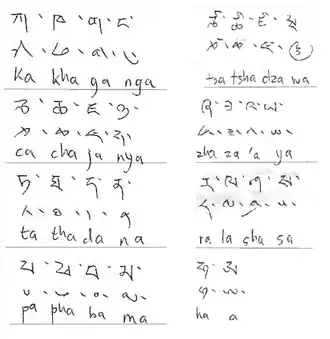 ཀ་ཁ་ག་ང་
ཀ་ཁ་ག་ང་
ka kha ga nga
ཅ་ཆ་ཇ་ཉ་
ཅ་ཆ་ཇ་ཉ་
ca cha ja nya
ཏ་ཐ་ད་ན་
ཏ་ཐ་ད་ན
ta tha da na
པ་ཕ་བ་མ་
པ་ཕ་བ་མ་
pa pha ba ma
ཙ་ཚ་ཛ་ཝ
ཙ་ཚ་ཛ་ཝ
tsa tsha dza wa
ཞ་ཟ་འ་ཡ་
ཞ་ཟ་འ་ཡ་
zha za 'a ya
ར་ལ་ཤ་ས་
ར་ལ་ཤ་ས་
ra la sha sa
ཧ་ཨ་
ཧ་ཨ་
ha a